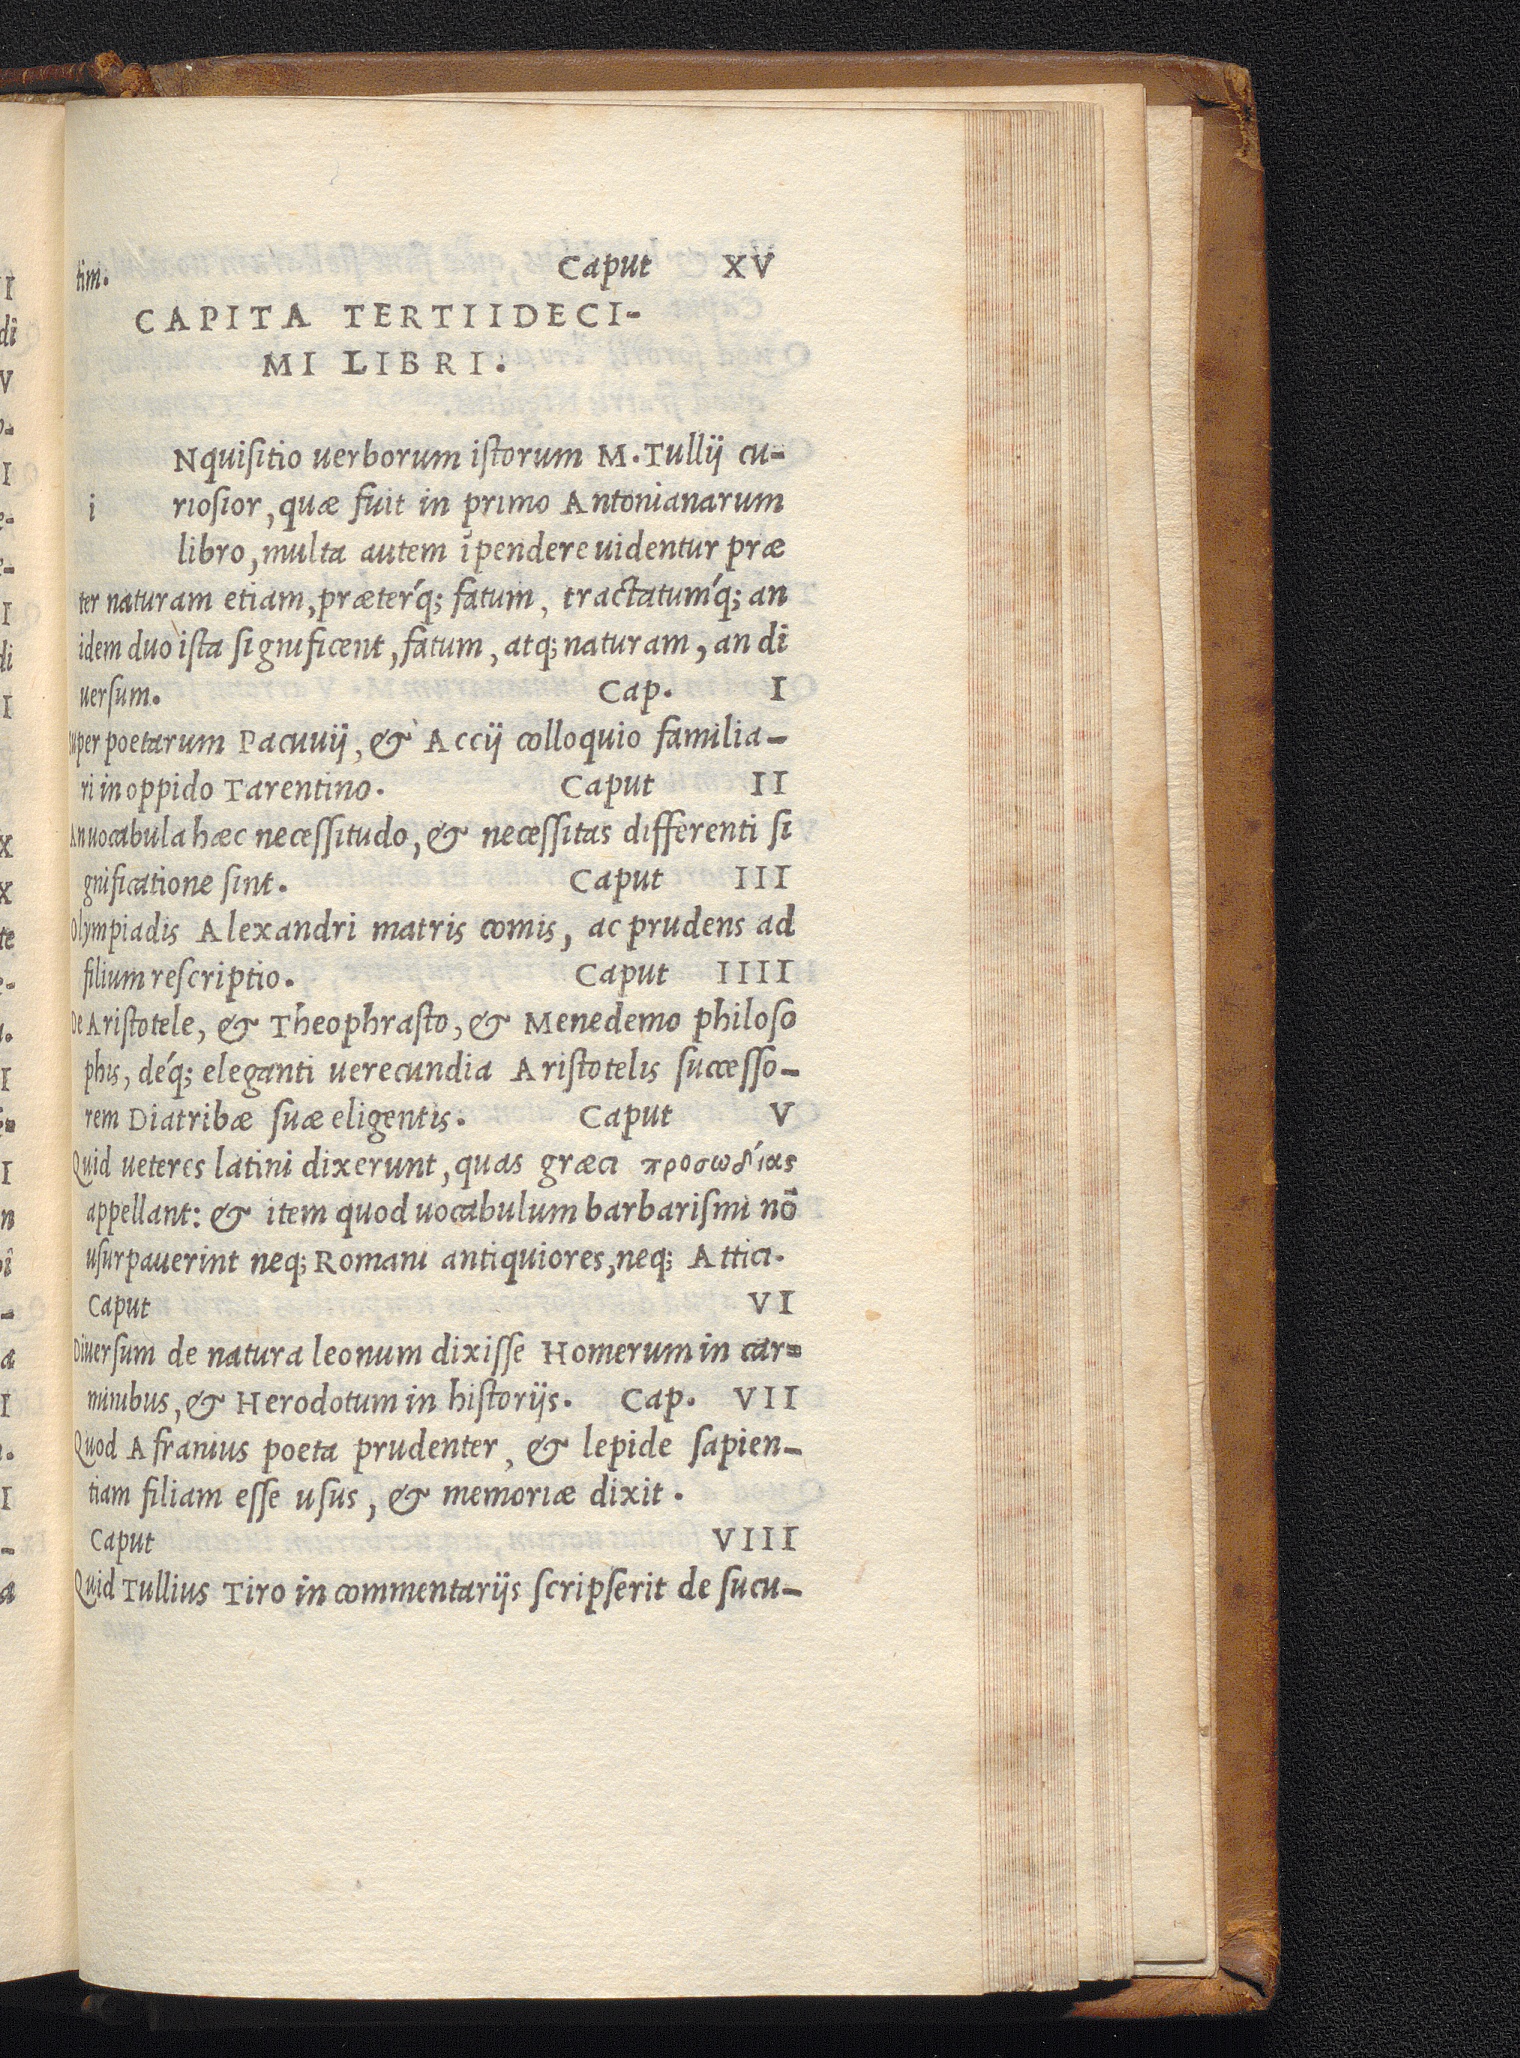 tim. Caput XV
CAPITA TERTIIDECI-
MI LIBRI.
i
Nquiſitio uerborum iſtorum M. Tullij cu-
rioſior, quæ fuit in primo Antonianarum
libro, multa autem īpendere uidentur præ
ter naturam etiam, præterq́; fatum, tractatumq́; an
idem duo iſta ſignificent, fatum, atq; naturam, an di
uerſum. Cap. I
uper poetarum Pacuuij, & Accij colloquio familia-
ri in oppido Tarentino. Caput II
An uocabula hæc neceſſitudo, & neceſſitas differenti ſi
gnificatione ſint. Caput III
Olympiadis Alexandri matris comis, ac prudens ad
filium reſcriptio. Caput IIII
De Ariſtotele, & Theophraſto, & Menedemo philoſo
phis, déq; eleganti uerecundia Ariſtotelis ſucceſſo-
rem Diatribæ ſuæ eligentis. Caput V
Quid ueteres latini dixerunt, quas græci προσωδίας
appellant: & item quod uocabulum barbariſmi nō
uſurpauerint neq; Romani antiquiores, neq; Attici.
Caput VI
Diuerſum de natura leonum dixiſſe Homerum in car-
minibus, & Herodotum in hiſtorijs. Cap. VII
Quod Afranius poeta prudenter, & lepide ſapien-
tiam filiam eſſe uſus, & memoriæ dixit.
Caput VIII
Quid Tullius Tiro in commentarijs ſcripſerit de ſucu-